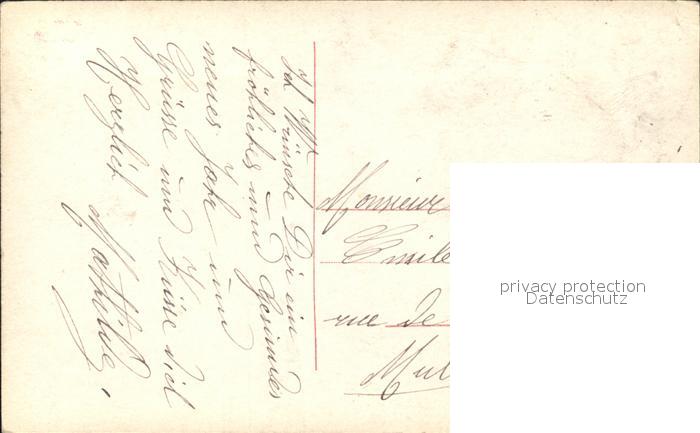 Ich Wünsche Dir ein
fröhliches und Gesundes
neues Jahr und
Grüsse und Küsse Dich
Herzlich Mathilde.
Monsieur
Emile
rue de
Mul
privacy protection
Datenschutz